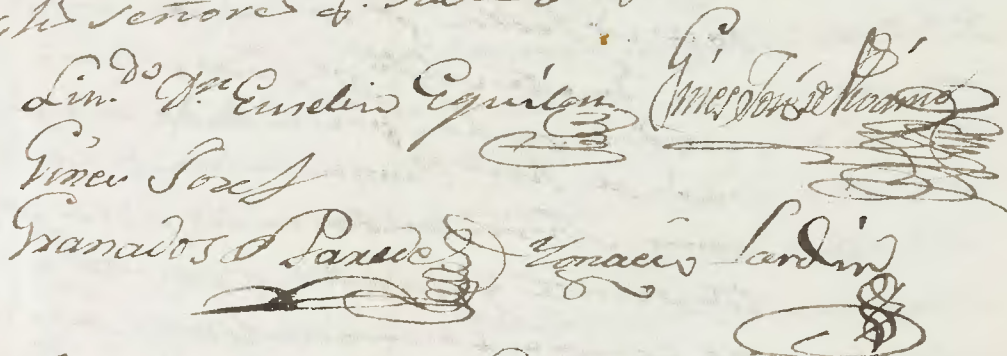 señores
Lin.do Dn Eusebio Eguilon Gines Jose de Vivanco
Gines Josef
Granados Paredes Ygnacio Jardin